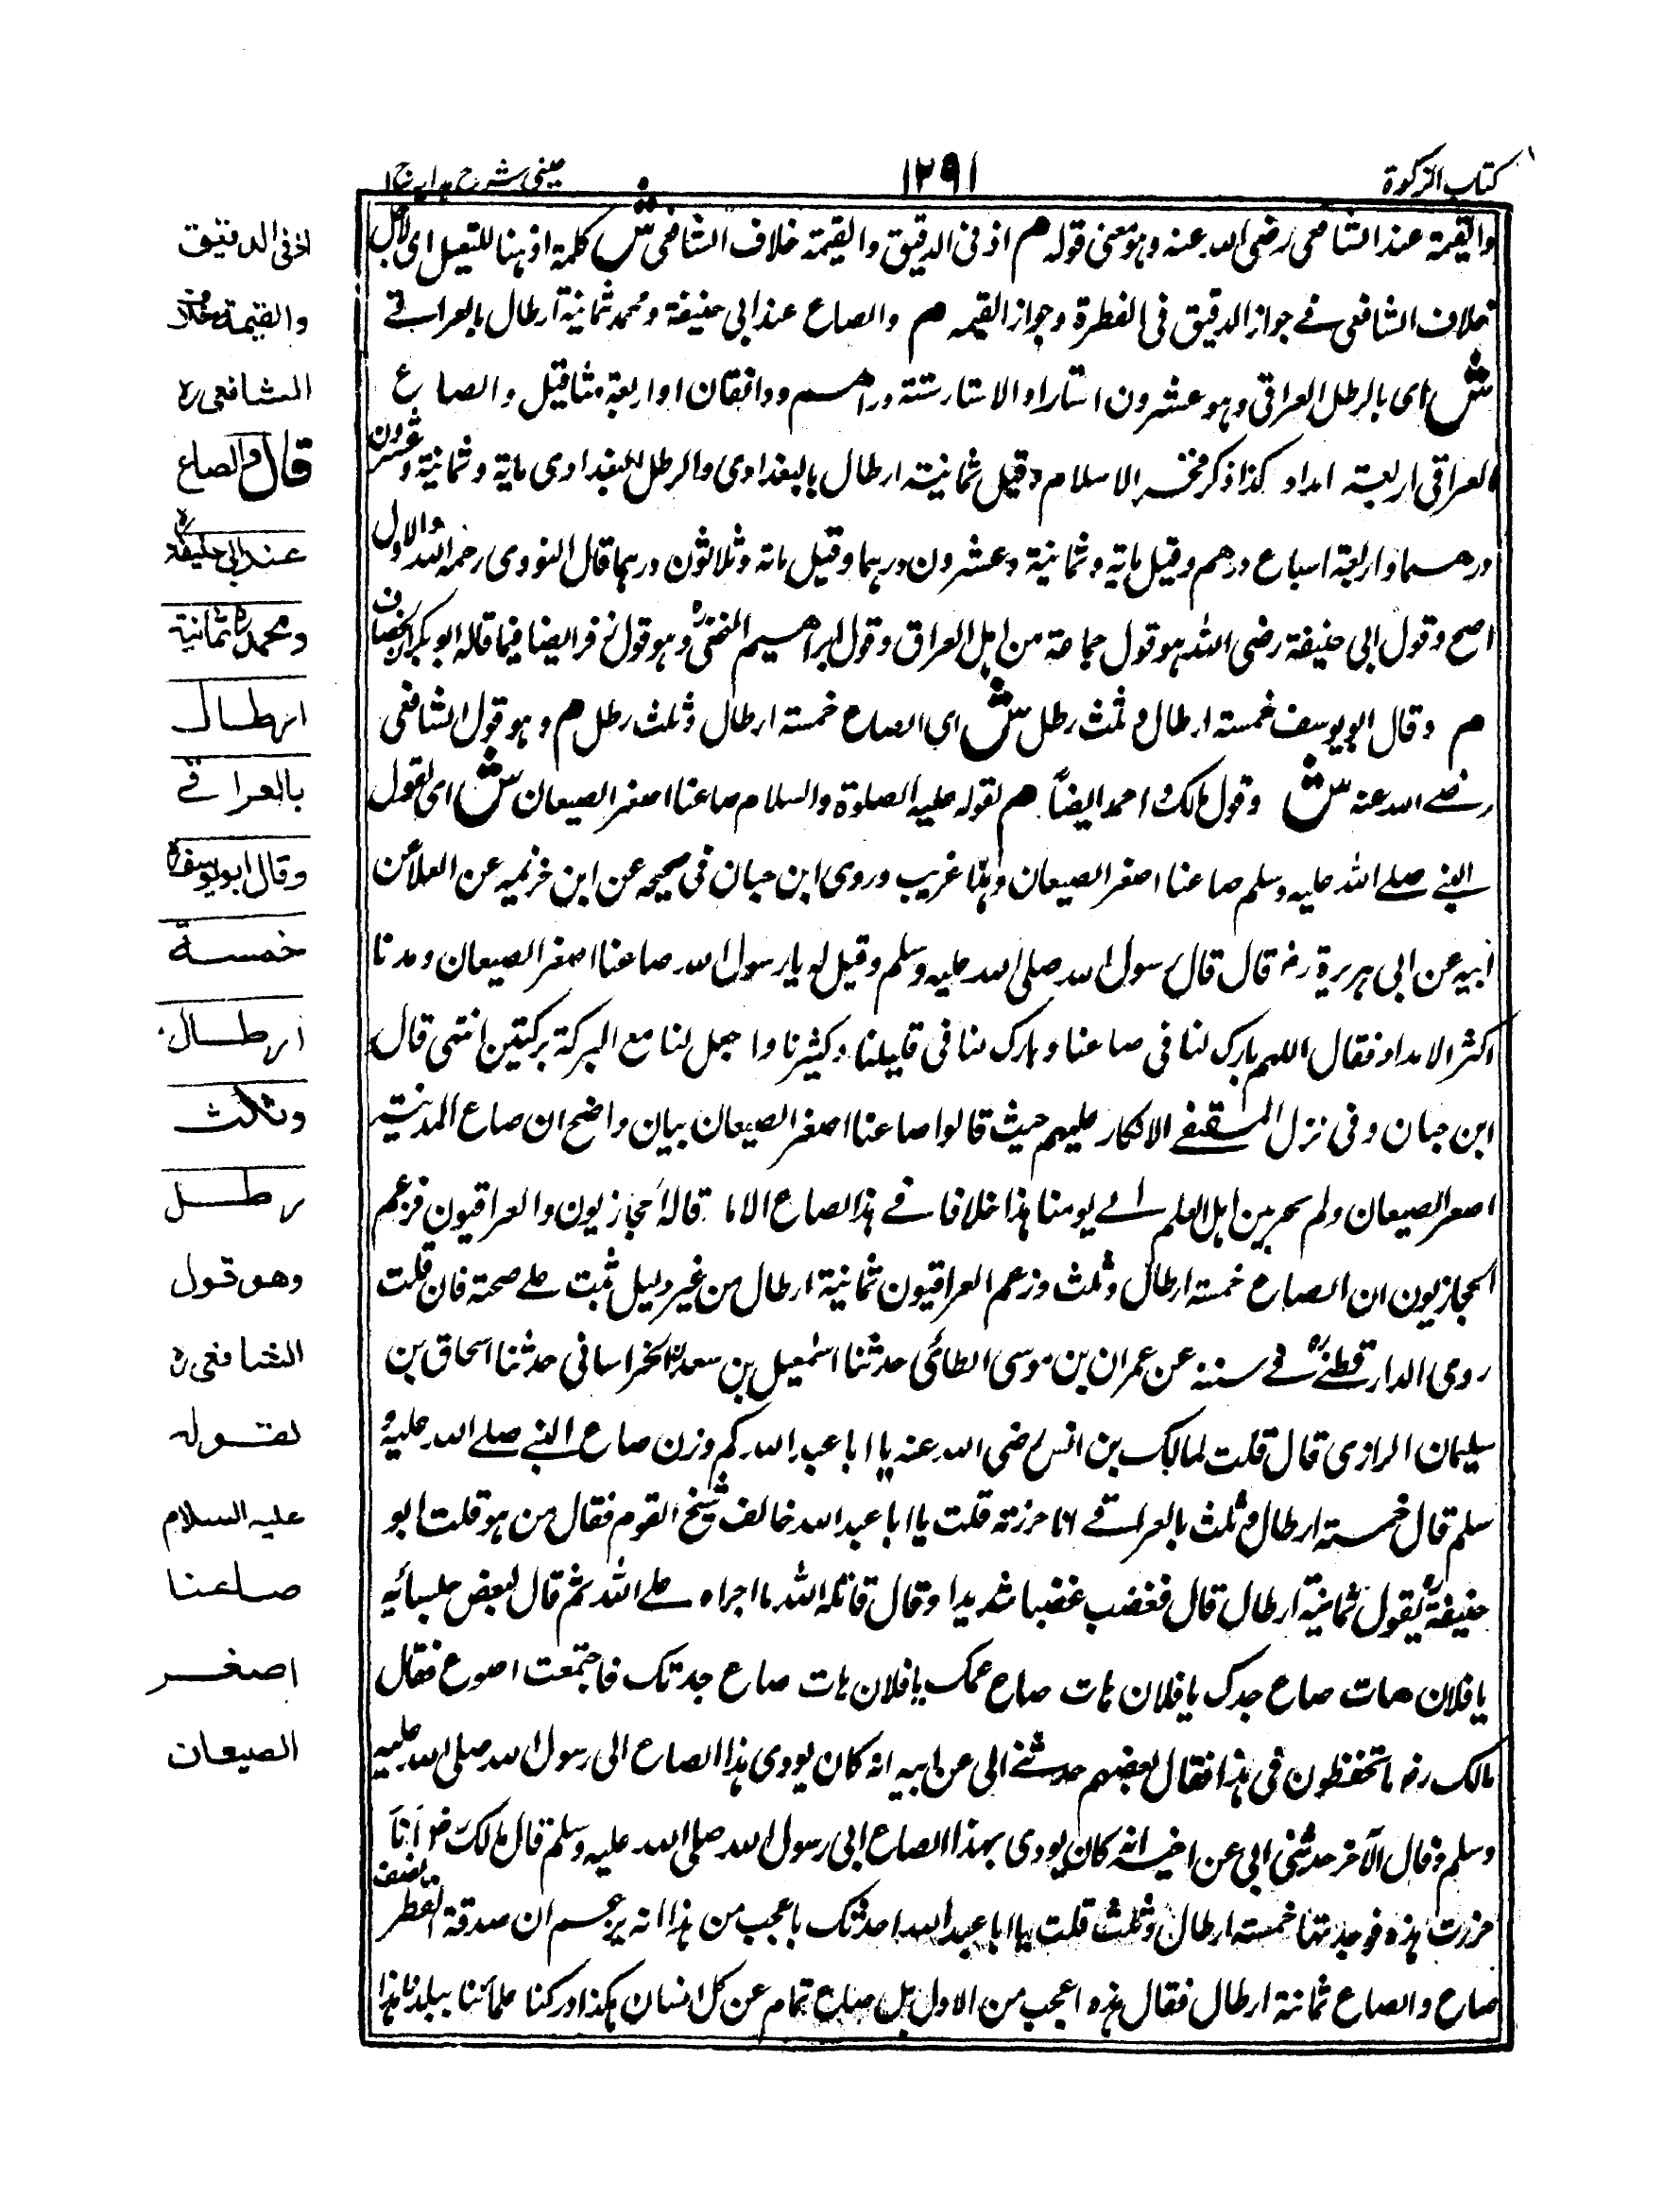 كتاب الزكوة
١٢٩١
عينى شرح هدايه ج١
والقيمة عند الشافعى رضى الله عنه وهو معنى قوله هم اذ فى الدقيق والقيمة خلاف الشافعى ش كلمة اذ ههنا للتعليل اى لاجل
خلاف الشافعى فى جواز الدقيق فى الفطرة وجواز القيمه هم والصاع عند ابى حنيفة ومحمد ثمانية ارطال بالعراقى
ش اى بالرطل العراقى وهو عشرون استارا والاستار ستة دراهم ودانقان او اربعة مثاقيل والصاع
العراقى اربعة امداد كذا ذكر فخر الاسلام وقيل ثمانية ارطال بالبغدادى والرطل البغدادى ماية وثمانية وعشرون
درهما واربعة اسباع درهم وقيل ماية وثمانية وعشرون درهما وقيل مائة وثلاثون درهما قال النووى رحمه الله والاول
اصح وقول ابى حنيفة رضى الله هو قول جماعة من اهل العراق وقول ابراهيم النخعى وهو قول زفر ايضا فيما قاله ابو بكر الخصاف
هم وقال ابو يوسف خمسة ارطال وثلث رطل ش اى الصاع خمسة ارطال وثلث رطل هم وهو قول الشافعى
رضى الله عنه ش وقول مالك و احمد ايضاً هم لقوله عليه الصلوة والسلام صاعنا اصغر الصيعان ش اى لقول
النبى صلى الله عليه وسلم صاعنا اصغر الصيعان وهذا غريب وروى ابن حبان فى صحيحه عن ابن خزيمه عن العلا عن
ابيه عن ابى هريرة رض قال قال رسول الله صلى الله عليه وسلم وقيل له يا رسول الله صاعنا اصغر الصيعان ومدنا
اكثر الامداد فقال اللهم بارك لنا فى صاعنا وبارك لنا فى قليلنا وكثيرنا واجعل لنا مع البركة بركتين انتهى قال
ابن حبان وفى ترك المصطفى الانكار عليهم حيث قالوا صاعنا اصغر الصيعان بيان واضح ان صاع المدينة
اصغر الصيعان ولم بين اهل العلم الى يومنا هذا خلافا فى هذا الصاع الا ما قاله الحجازيون والعراقيون فزعم
الحجازيون ان الصاع خمسة ارطال وثلث وزعم العراقيون ثمانية ارطال من غير دليل ثبت على صحته فان قلت
روى الدارقطنى فى سننه عن عمران بن موسى الطائى حدثنا اسمعيل بن سعد الخراسانى حدثنا اسحاق بن
سليمان الرازى قال قلت لمالك بن انس رضى الله عنه يا ابا عبد الله كم وزن صاع النبى صلى الله عليه و
سلم قال خمسة ارطال وثلث بالعراقى انا حزرته قلت يا ابا عبد الله خالفت شيخ القوم فقال من هو قلت ابو
حنيفة يقول ثمانية ارطال قال فغضب غضبا شديدا وقال قاتله الله ما اجراه على الله ثم قال لبعض جلسائه
يا فلان هات صاع جدك يا فلان هات صاع عمك يا فلان هات صاع جدتك فاجتمعت اصوع فقال
مالك رض ما تحفظون فى هذا فقال بعضهم حدثنى ابى عن ابيه انه كان يودى بهذا الصاع الى رسول الله صلى الله عليه
وسلم وقال الآخر حدثنى ابى عن اخيه انه كان يودى بهذا الصاع الى رسول الله صلى الله عليه وسلم قال مالك رض انا
حزرت هذه فوجدتها خمسة ارطال وثلث قلت يا ابا عبد الله احدثك باعجب من هذا انه يزعم ان صدقة الفطر نصف
صاع والصاع ثمانية ارطال فقال هذه اعجب من الاول بل صاع تمام عن كل انسان هكذا ادركنا علمائنا ببلدنا هذا
اذ فى الدقيق
والقيمة خلاف
الشافعى ره
قال والصاع
عند ابى حنيفة ره
ومحمد ره ثمانية
ارطال
بالعراقى
وقال ابو يوسف ره
خمسة
ارطال
وثلث
رطل
وهو قول
الشافعى ره
لقوله
عليه السلام
صاعنا
اصغر
الصيعان